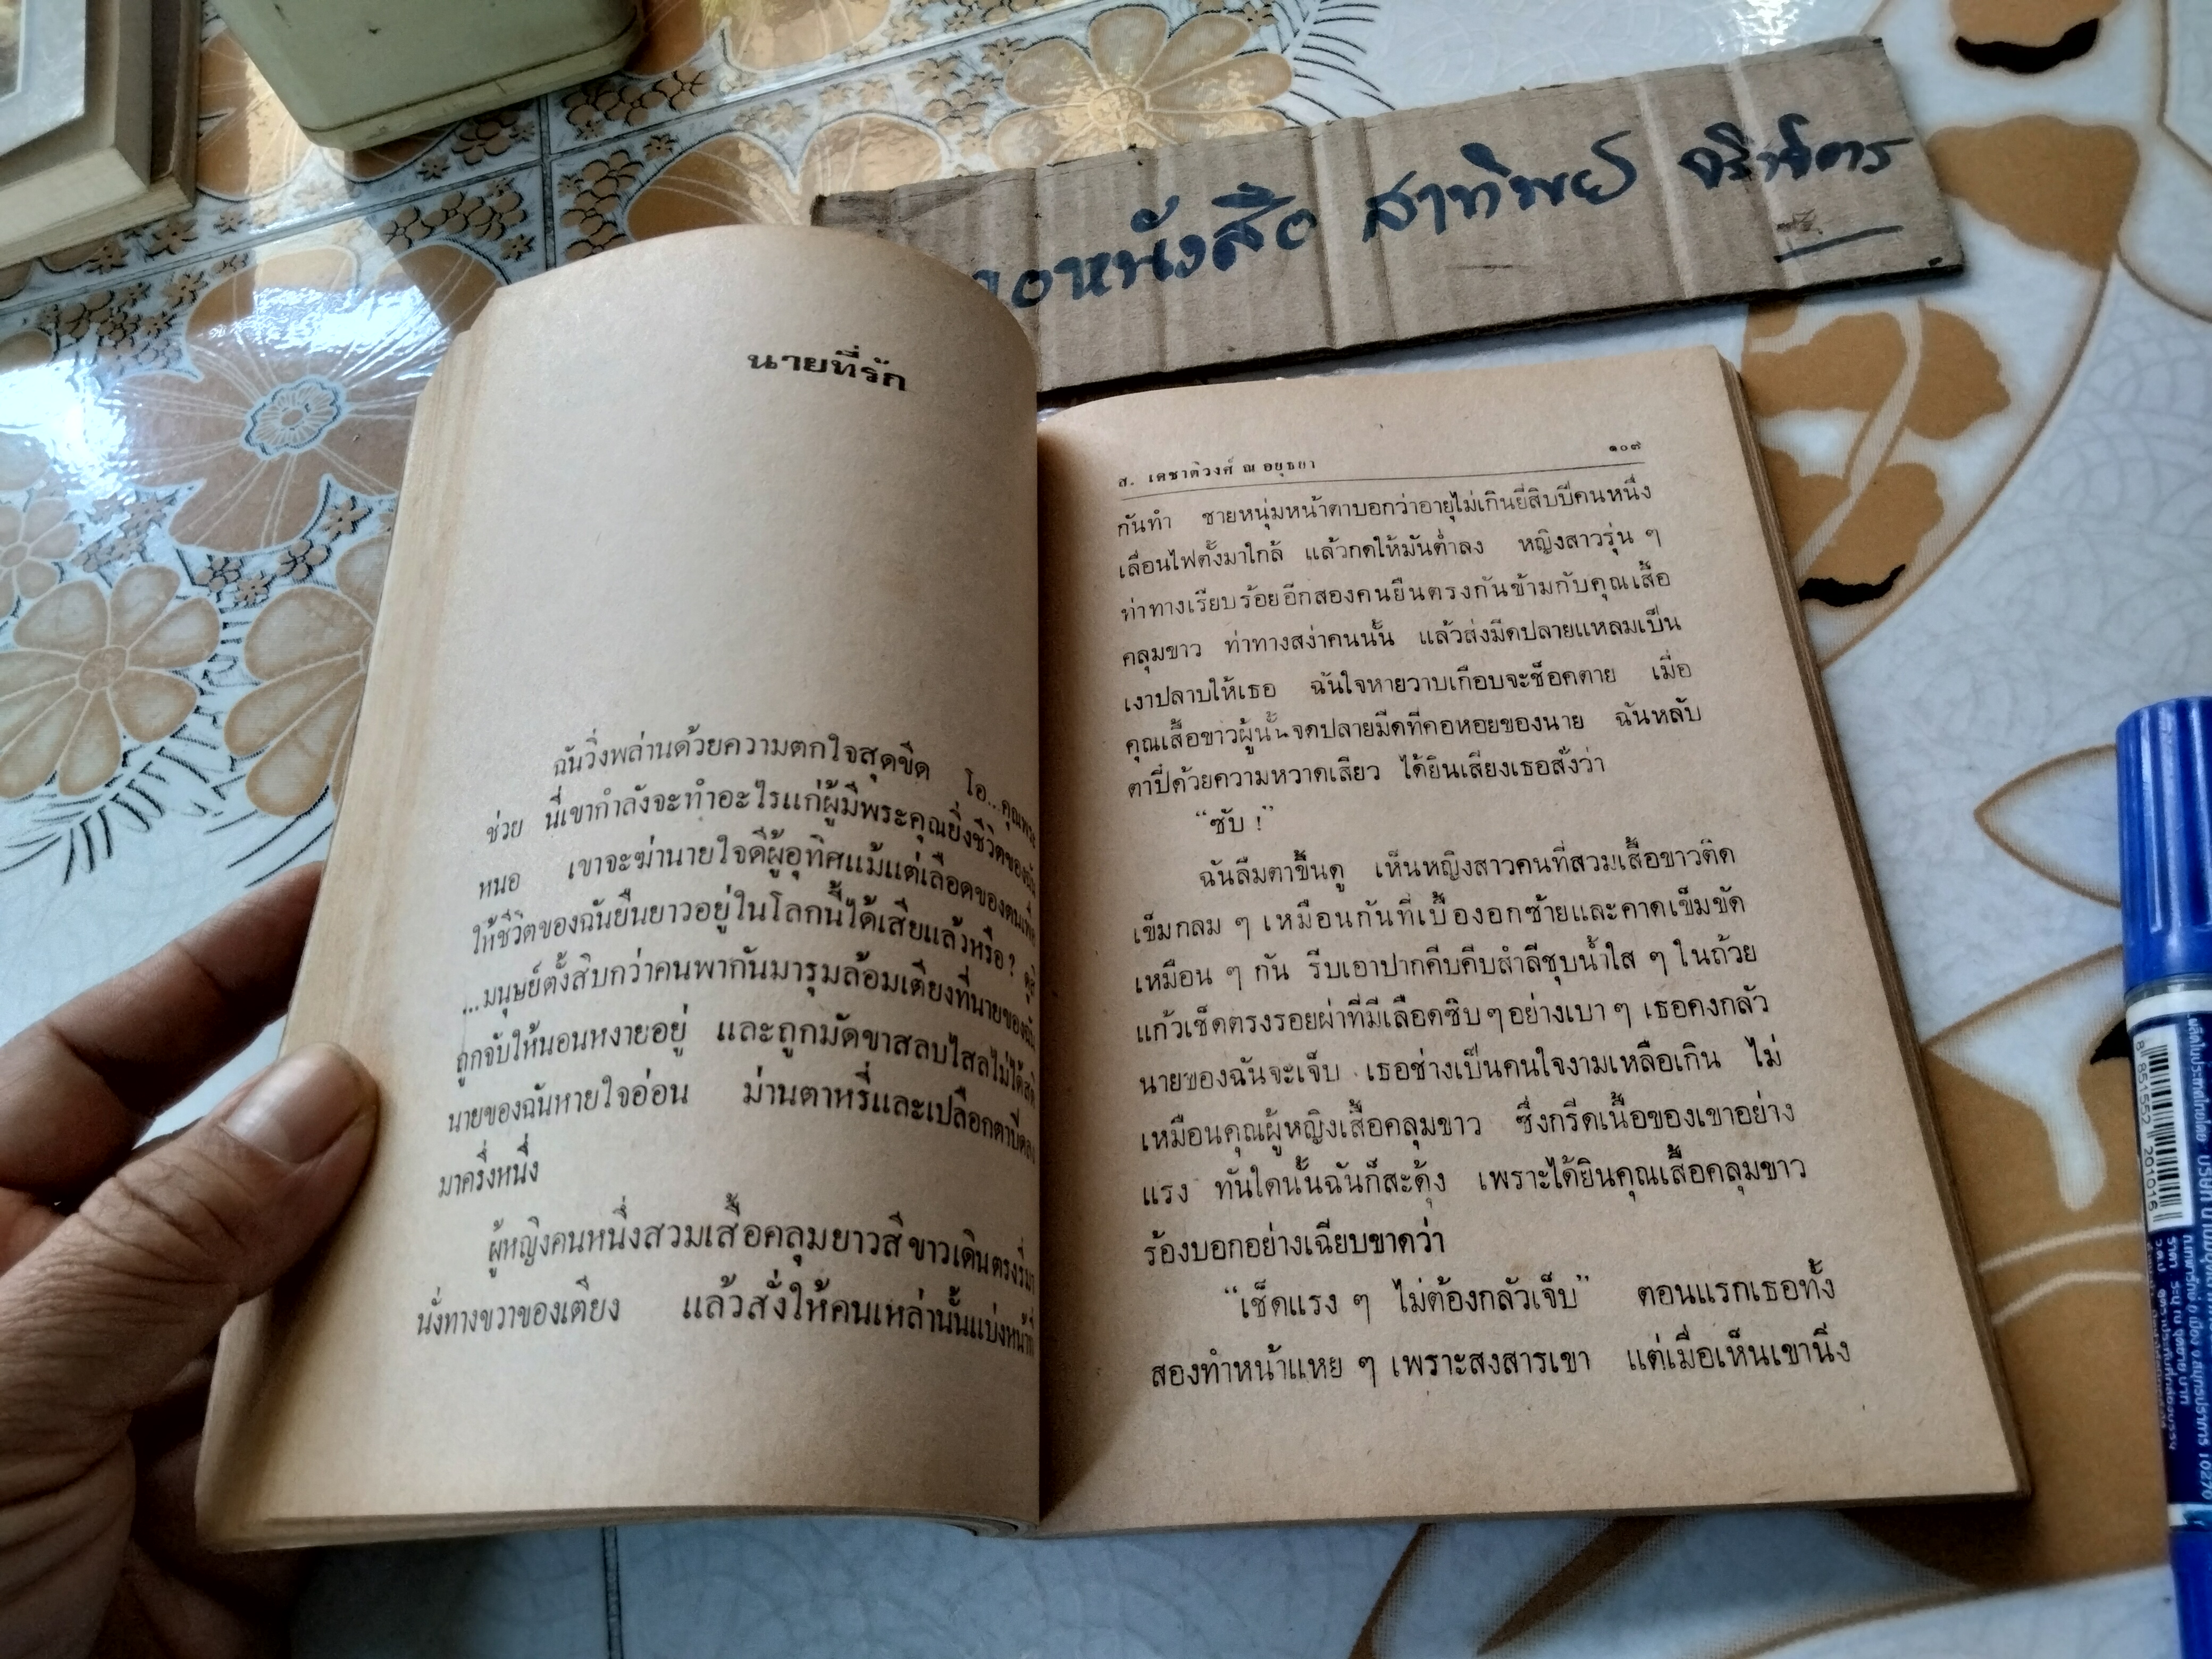 อหนังสือ สาทิพย์
นายที่รัก
ฉันวิ่งพล่านด้วยความตกใจสุดขีด โอ...คุณพระ
ช่วย นี่เขากำลังจะทำอะไรแก่ผู้มีพระคุณยิ่งชีวิตของฉัน
หนอ เขาจะฆ่านายใจดีผู้อุทิศแม้แต่เลือดของตนเพื่อ
ให้ชีวิตของฉันยืนยาวอยู่ในโลกนี้ได้เสียแล้วหรือ? ดูสิ
...มนุษย์ตั้งสิบกว่าคนพากันมารุมล้อมเตียงที่นายของฉัน
ถูกจับให้นอนหงายอยู่ และถูกมัดขาสลบไสลไม่ได้สติ
นายของฉันหายใจอ่อน ม่านตาหรี่และเปลือกตาปิดลง
มาครึ่งหนึ่ง
ผู้หญิงคนหนึ่งสวมเสื้อคลุมยาวสีขาวเดินตรงรี่มา
นั่งทางขวาของเตียง แล้วสั่งให้คนเหล่านั้นแบ่งหน้าที่
ส. เดชาติวงศ์ ณ อยุธยา ๑๐๗
กันทำ ชายหนุ่มหน้าตาบอกว่าอายุไม่เกินยี่สิบปีคนหนึ่ง
เลื่อนไฟตั้งมาใกล้ แล้วกดให้มันต่ำลง หญิงสาวรุ่น ๆ
ท่าทางเรียบร้อยอีกสองคนยืนตรงกันข้ามกับคุณเสื้อ
คลุมขาว ท่าทางสง่าคนนั้น แล้วส่งมีดปลายแหลมเป็น
เงาปลาบให้เธอ ฉันใจหายวาบเกือบจะช็อคตาย เมื่อ
คุณเสื้อขาวผู้นั้นจดปลายมีดที่คอหอยของนาย ฉันหลับ
ตาปี๋ด้วยความหวาดเสียว ได้ยินเสียงเธอสั่งว่า
“ซับ !”
ฉันลืมตาขึ้นดู เห็นหญิงสาวคนที่สวมเสื้อขาวติด
เข็มกลม ๆ เหมือนกันที่เบื้องอกซ้ายและคาดเข็มขัด
เหมือน ๆ กัน รีบเอาปากคีบคีบสำลีชุบน้ำใส ๆ ในถ้วย
แก้วเช็ดตรงรอยผ่าที่มีเลือดซิบๆอย่างเบา ๆ เธอคงกลัว
นายของฉันจะเจ็บ เธอช่างเป็นคนใจงามเหลือเกิน ไม่
เหมือนคุณผู้หญิงเสื้อคลุมขาว ซึ่งกรีดเนื้อของเขาอย่าง
แรง ทันใดนั้นฉันก็สะดุ้ง เพราะได้ยินคุณเสื้อคลุมขาว
ร้องบอกอย่างเฉียบขาดว่า
“เช็ดแรง ๆ ไม่ต้องกลัวเจ็บ” ตอนแรกเธอทั้ง
สองทำหน้าแหย ๆ เพราะสงสารเขา แต่เมื่อเห็นเขานิ่ง
8 851552 201016